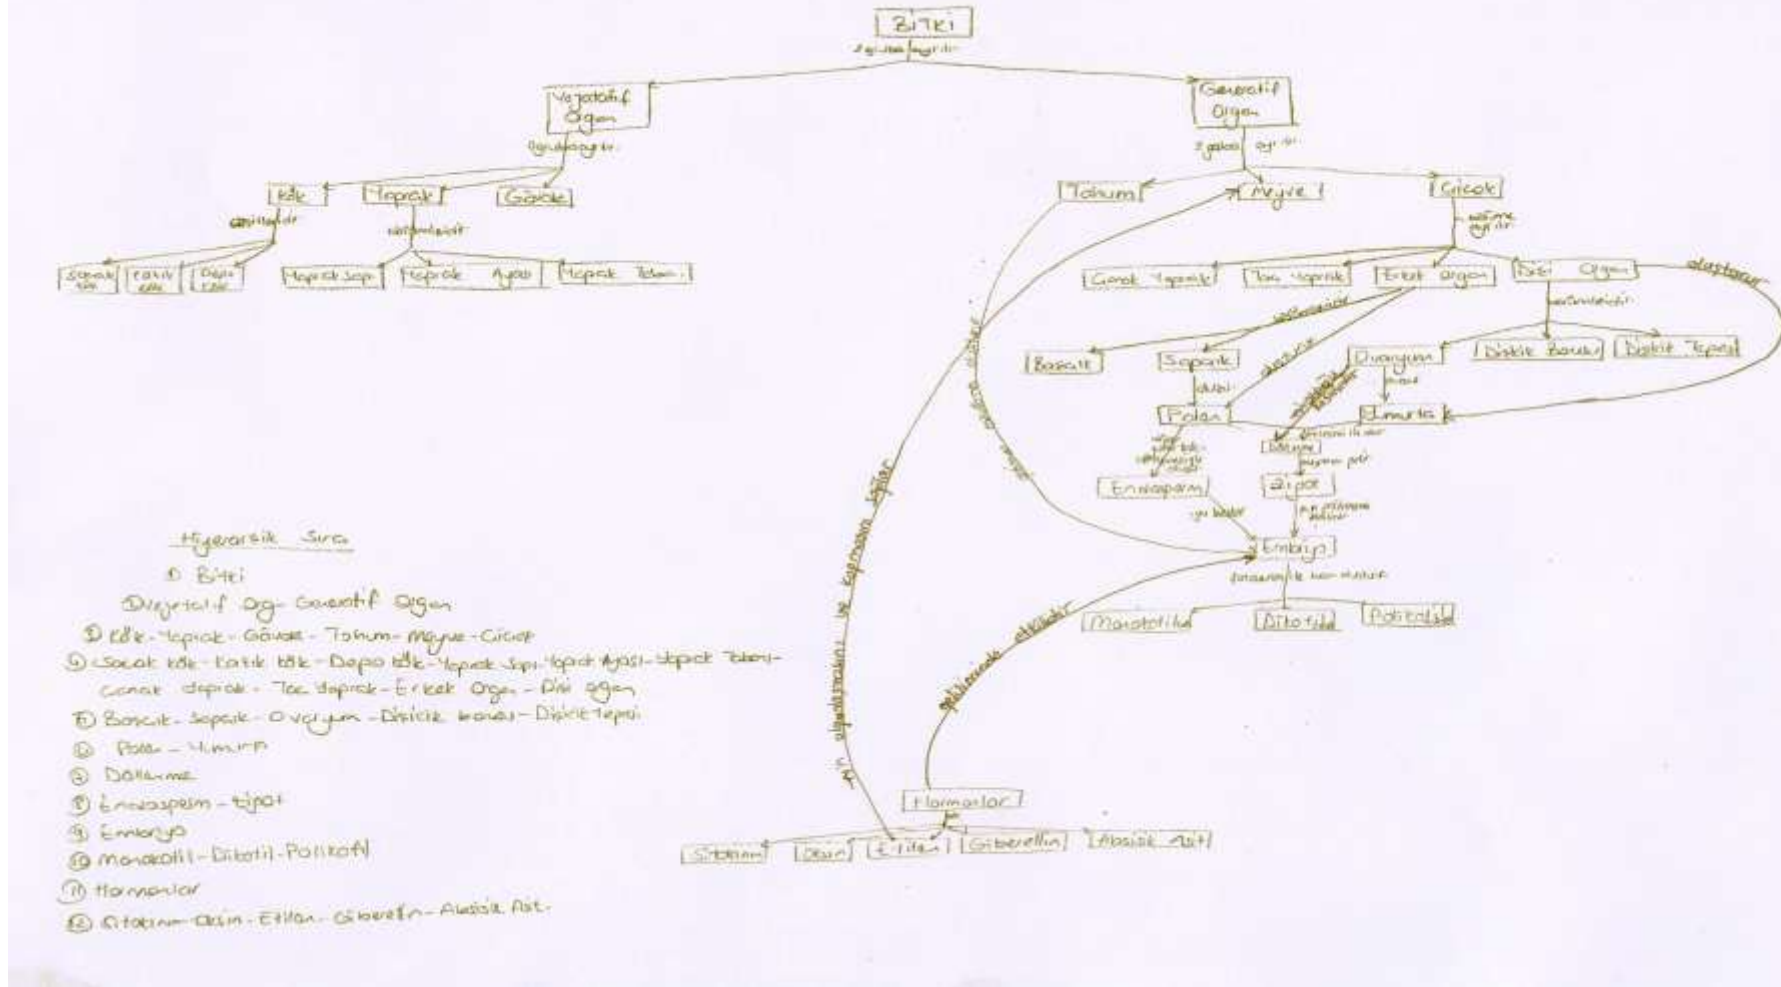 BİTKİ
Vejatatif
Organ
Generatif
Organ
ayrılır
Kök
Yaprak
Gövde
Tohum
Meyve
Çiçek
Saçak
kök
Kazık
kök
Depo
kök
Yaprak Sapı
Yaprak Ayası
Yaprak Tabanı
Çanak Yaprak
Taç Yaprak
Erkek Organ
Dişi Organ
oluşturur
Başcık
Sapcık
Ovaryum
Dişicik Borusu
Dişicik Tepesi
Polen
Yumurta
Döllenme
Endosperm
Zigot
Embriyo
Monokotil
Dikotil
Polikotil
'nin olgunlaşmasını ve kopmasını sağlar
gelişiminde etkilidir
Hormonlar
Sitokinin
Oksin
Etilen
Giberellin
Absisik Asit
Hiyerarşik Sıra
① Bitki
② Vejetatif Org - Generatif Organ
③ Kök - Yaprak - Gövde - Tohum - Meyve - Çiçek
④ Saçak kök - Kazık kök - Depo kök - Yaprak Sapı - Yaprak Ayası - Yaprak Tabanı -
Çanak Yaprak - Taç Yaprak - Erkek Organ - Dişi Organ
⑤ Başcık - Sapcık - Ovaryum - Dişicik borusu - Dişicik tepesi
⑥ Polen - Yumurta
⑦ Döllenme
⑧ Endosperm - Zigot
⑨ Embriyo
⑩ Monokotil - Dikotil - Polikotil
⑪ Hormonlar
⑫ Sitokinin - Oksin - Etilen - Giberellin - Absisik Asit.